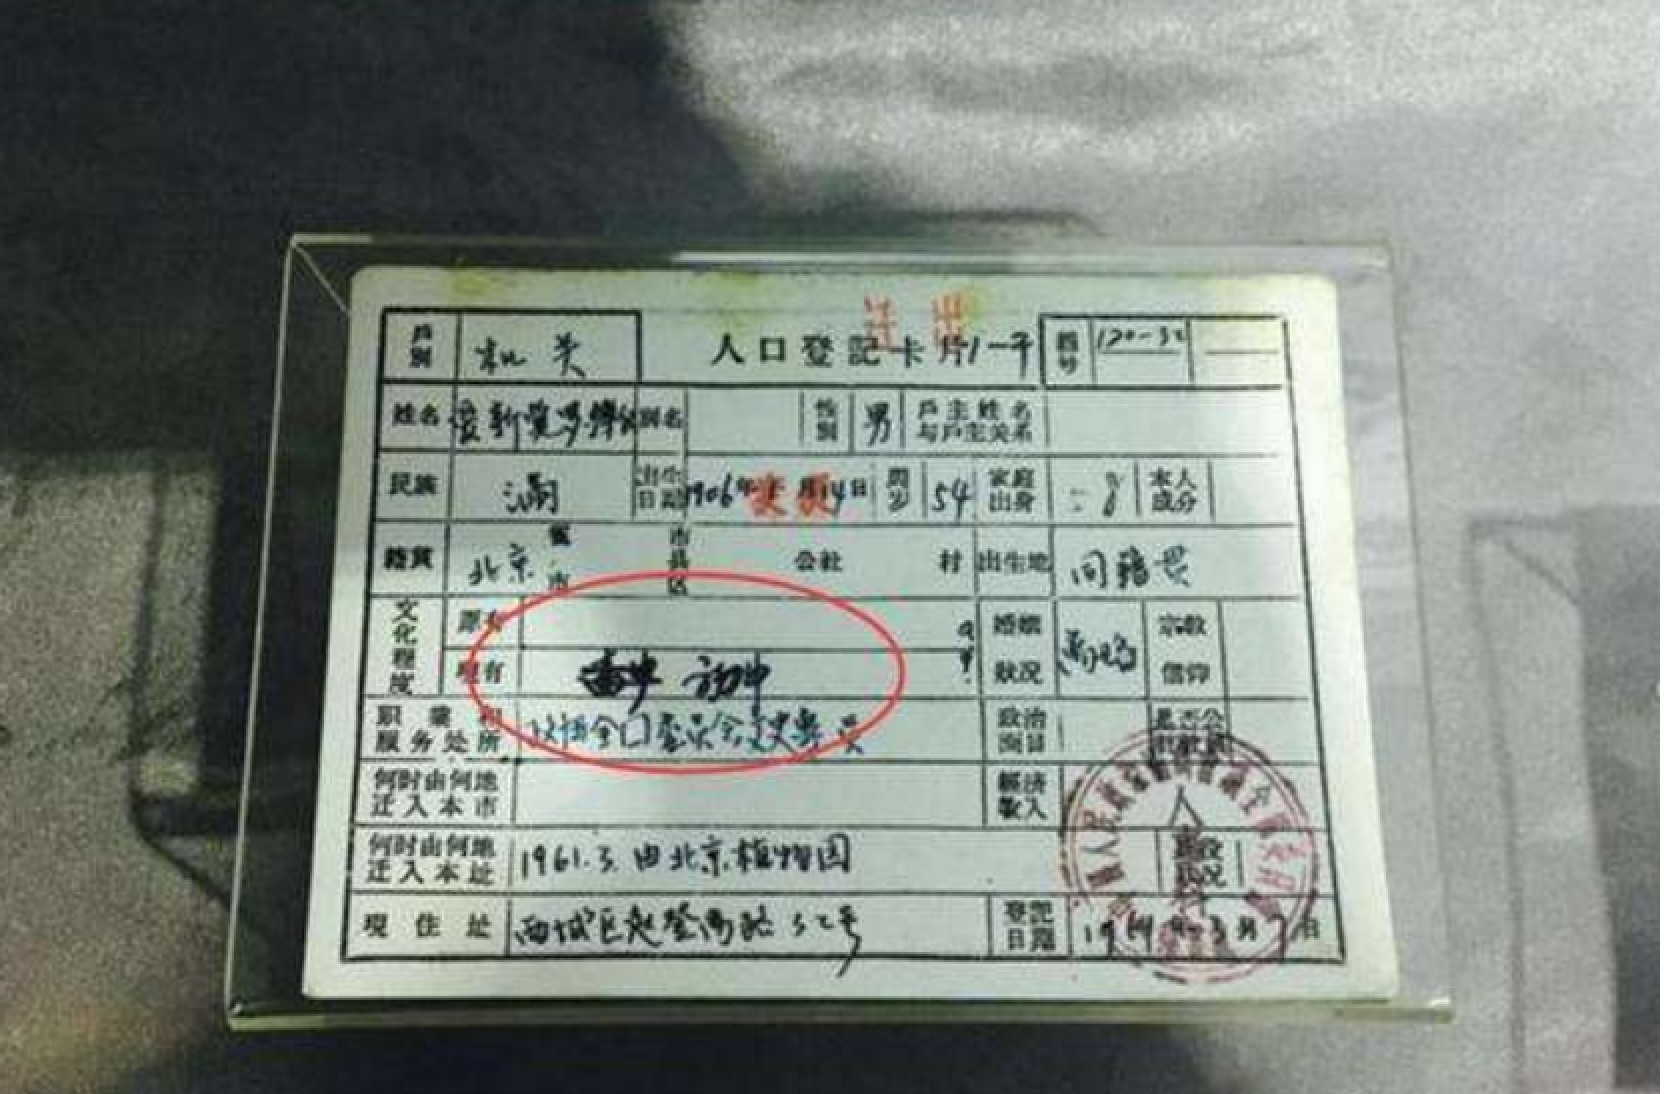 迁出
户别 机关 人口登記卡片 1-平 編号 120-32
姓名 爱新觉罗溥仪 别名 性别 男 戶主姓名与戶主关系
民族 满 出生日期 1906年 月14日 周岁 54 家庭出身 本人成分
籍貫 北京 省市 市县区 公社 村 出生地 同籍贯
文化程度 原有 婚姻狀况 宗教信仰
現有 初中
职業和服务处所 政协全国委员会文史专员 政治面目 是否公
何时由何地迁入本市 經济收入
何时由何地迁入本址 1961.3. 由北京植物园
現住址 西城区赵登禹路32号 登記日期 月 日